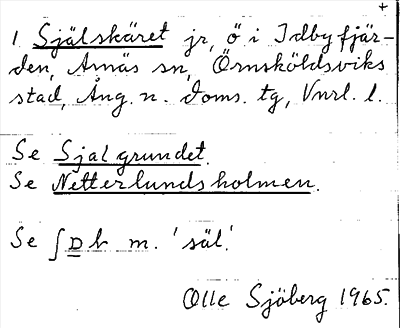 +
1 Själskäret jr, ö i Idbyfjär-
den, Arnäs sn, Örnsköldsviks
stad, Ång. n. doms. tg, Vnrl. l.
Se Sjalgrundet.
Se Netterlundsholmen.
Se m. 'säl'.
Olle Sjöberg 1965.